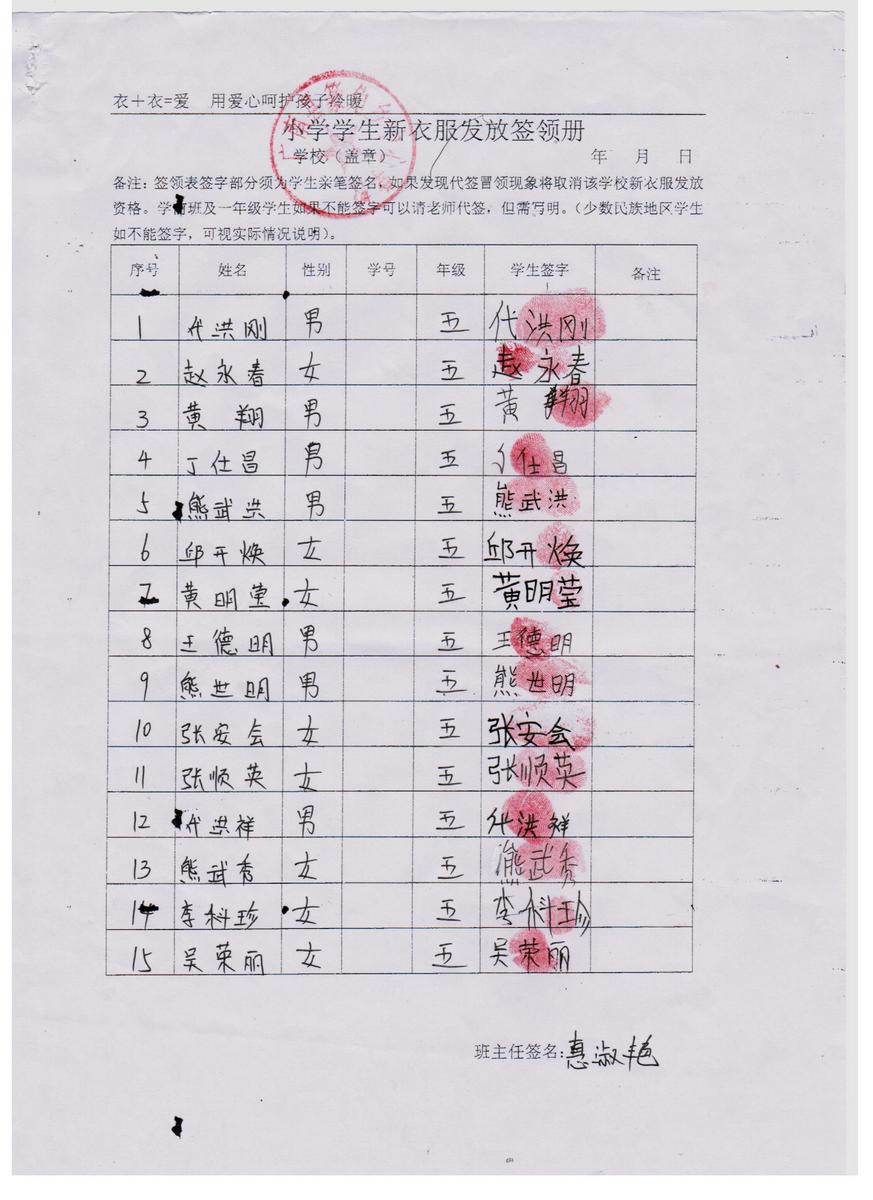 衣＋衣=爱　用爱心呵护孩子冷暖
小学学生新衣服发放签领册
学校（盖章）　年　月　日
备注：签领表签字部分须为学生亲笔签名，如果发现代签冒领现象将取消该学校新衣服发放
资格。学前班及一年级学生如果不能签字可以请老师代签，但需写明。（少数民族地区学生
如不能签字，可视实际情况说明）。
序号 姓名 性别 学号 年级 学生签字 备注
1 代洪刚 男 五 代洪刚
2 赵永春 女 五 赵永春
3 黄翔 男 五 黄翔
4 丁仕昌 男 五 丁仕昌
5 熊武洪 男 五 熊武洪
6 邱开焕 女 五 邱开焕
7 黄明莹 女 五 黄明莹
8 王德明 男 五 王德明
9 熊世明 男 五 熊世明
10 张安会 女 五 张安会
11 张顺英 女 五 张顺英
12 代洪祥 男 五 代洪祥
13 熊武秀 女 五 熊武秀
14 李科珍 女 五 李科珍
15 吴荣丽 女 五 吴荣丽
班主任签名:惠淑艳